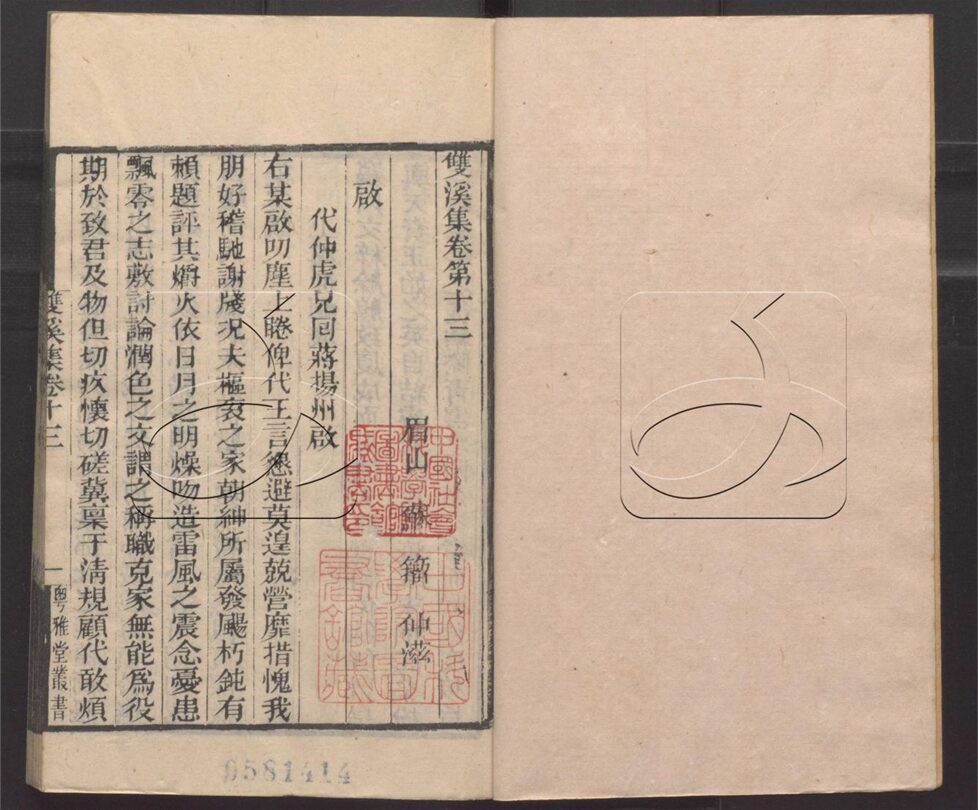 雙溪集卷第十三
眉山 蘇 籀 仲滋
啟
代仲虎兄回蔣揚州啟
右某啟叨塵上睠俾代王言懇避莫遑兢營靡措愧我
朋好稽馳謝牋況夫樞衮之家朝紳所屬發颺朽鈍有
賴題評其爝火依日月之明燥吻造雷風之震念憂患
飄零之志敷討論潤色之文謂之稱職克家無能為役
期於致君及物但切疚懷切磋冀稟于淸規顧代敢煩
雙溪集卷十三
一
粵雅堂叢書
0581414